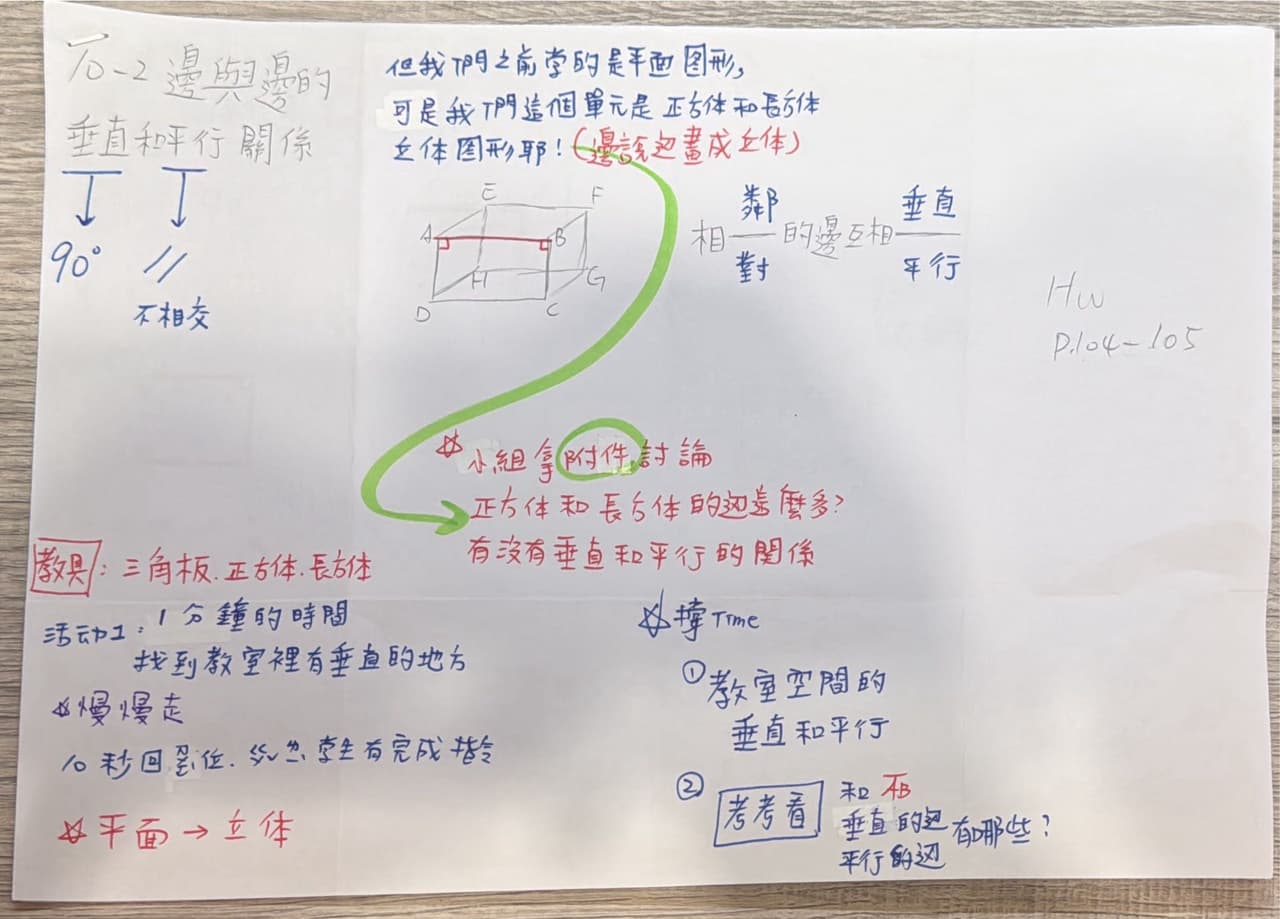 10-2 邊與邊的
垂直和平行關係
90° //
不相交
但我們之前学的是平面图形,
可是我們這個單元是正方体和長方体
立体图形耶!(邊說边畫成立体)
E F
A B
H G
D C
相鄰的邊互相垂直
對 平行
HW
P.104-105
☆小組拿附件討論
正方体和長方体的边這麼多?
有沒有垂直和平行的關係
教具:三角板.正方体.長方体
活动1:1分鐘的時間
找到教室裡有垂直的地方
☆慢慢走
10秒回到位. 学生有完成指令
☆平面→立体
☆撐Time
①教室空間的
垂直和平行
②考考看 和AB
垂直的边 有哪些?
平行的边